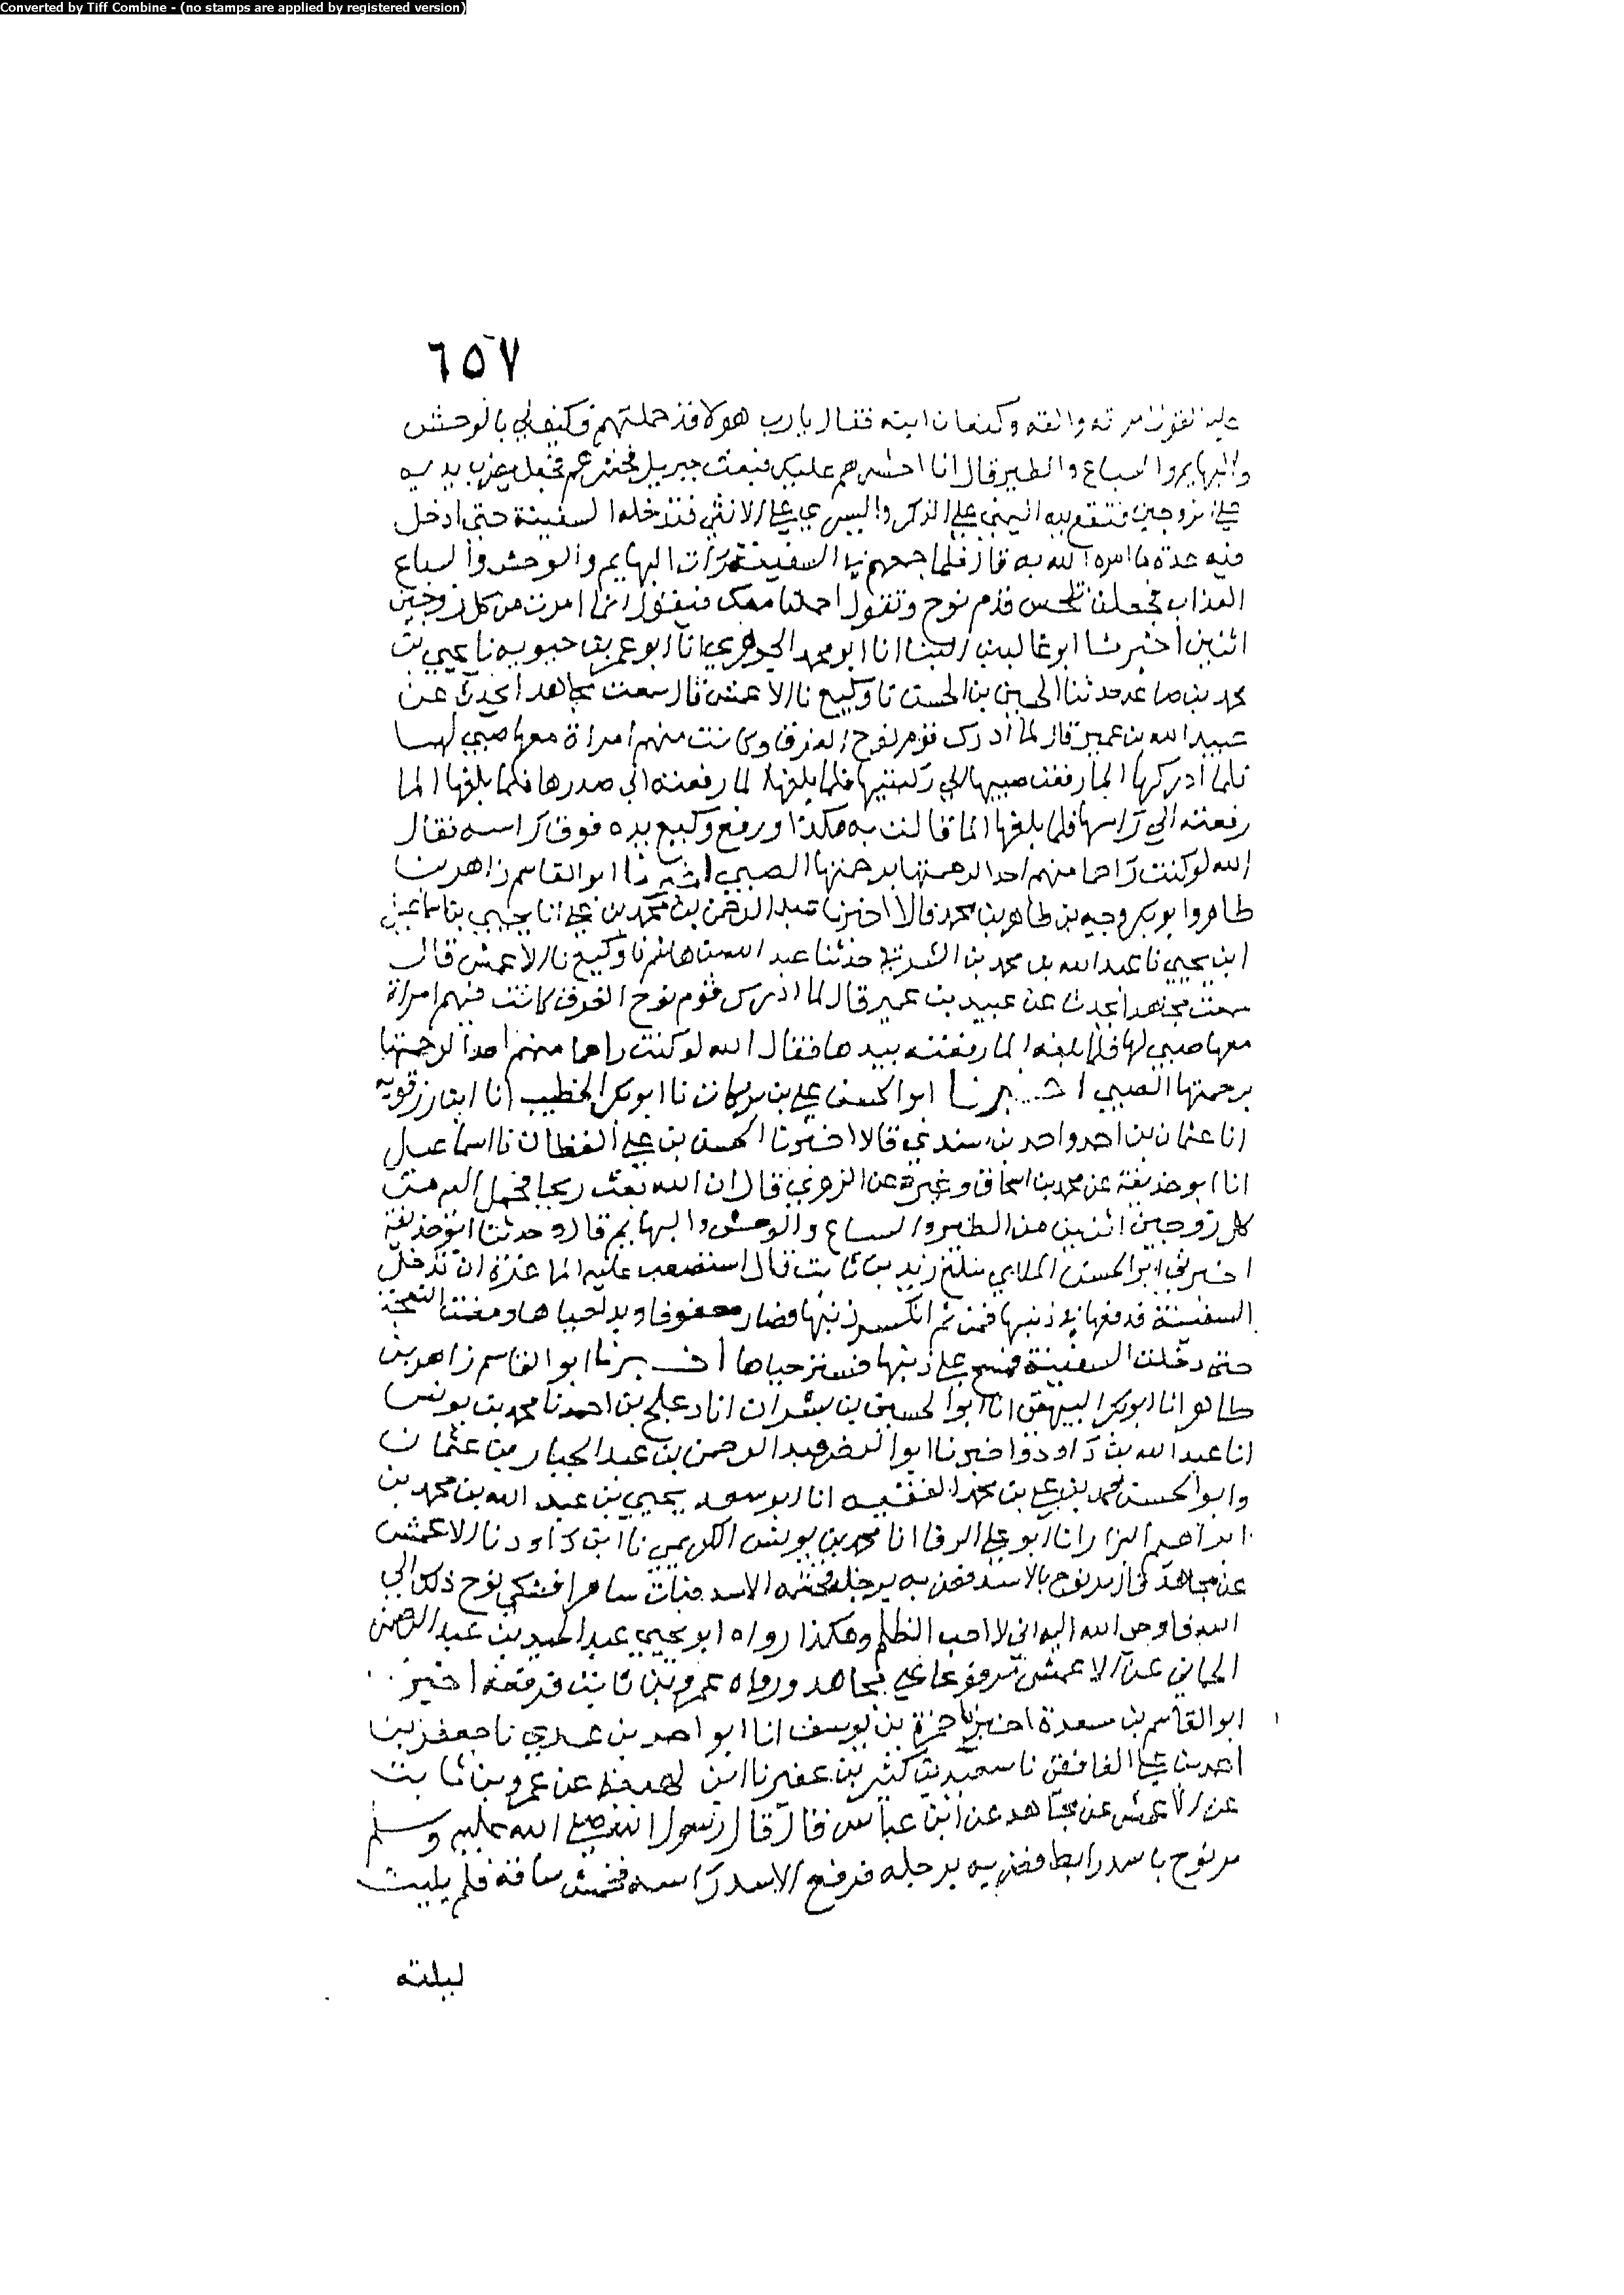 Converted by Tiff Combine - (no stamps are applied by registered version)
٦٥٧
القول امرته والقه وكنعان ابنه فقال يارب هولا قد حملتهم فكيف لي بالوحش
والبهايم والسباع والطير قال انا احشرهم عليك فبعث جبريل فحشرهم فجعل يضرب بيديه
علي الزوجين فتقع يده اليمني علي الذكر واليسري علي الانثي فتدخله السفينة حتي ادخل
فيه عدة ما امره الله به قال فلما جمعهم في السفينة رات البهايم والوحش والسباع
العذاب فجعلت تلحس قدم نوح وتقول احملنا معك فيقول انما امرت من كل زوجين
اثنين اخبرنا ابو غالب بن البنا انا ابو محمد الجوهري انا ابو عمر بن حيويه نا يحيي بن
محمد بن صاعد حدثنا الحسين بن الحسن نا وكيع نا الاعمش قال سمعت مجاهدا يحدث عن
عبيد الله بن عمير قال لما ادرك قوم نوح الغرق وكانت منهم امراة معها صبي لها
فلما ادركها الما رفعت صبيها الي ركبتيها فلما بلغها الما رفعته الي صدرها فلما بلغها الما
رفعته الي راسها فلما بلغها الما قالت به هكذا ورفع وكيع يده فوق راسه فقال
الله لو كنت راحما منهم احدا لرحمتها برحمتها الصبي اخبرنا ابو القاسم زاهر بن
طاهر وابو بكر وجيه بن طاهر بن محمد قالا اخبرنا عبد الرحمن بن محمد بن علي انا يحيي بن اسماعيل
ابن يحيي نا عبد الله بن محمد بن الشرقي حدثنا عبد الله بن هاشم نا وكيع نا الاعمش قال
سمعت مجاهدا يحدث عن عبيد بن عمير قال لما ادرك قوم نوح الغرق كانت فيهم امراة
معها صبي لها فلما بلغه الما رفعته بيدها فقال الله لو كنت راحما منهم احدا لرحمتها
برحمتها الصبي اخبرنا ابو الحسن علي بن بركات نا ابو بكر الخطيب انا ابن رزقويه
انا عثمان بن احمد واحمد بن سندي قالا اخبرنا الحسن بن علي القطان نا اسماعيل
انا ابو حذيفة عن محمد بن اسحاق وغيره عن الزهري قال ان الله بعث ريحا فحمل اليه من
كل زوجين اثنين من الطير والسباع والوحش والبهايم قال وحدثنا ابو حذيفة
اخبرني ابو الحسن الملايي زيد بن ثابت قال استصعب عليه الماعزة ان تدخل
السفينة فدفعها في ذنبها فمن ثم انكسر ذنبها فصار معقوفا وبدا حياها ومضت النعجة
حتي دخلت السفينة فمسح علي ذنبها فستر حياها اخبرنا ابو القاسم زاهر بن
طاهر انا ابو بكر البيهقي انا ابو الحسين بن بشران انا دعلج بن احمد نا محمد بن يونس
انا عبد الله بن داود واخبرنا ابو النضر عبد الرحمن بن عبد الجبار بن عثمان
وابو الحسن محمد بن علي بن محمد الفقيه انا ابو سعد يحيي بن عبد الله بن محمد بن
ابراهيم البزار انا ابو علي الرفا انا محمد بن يونس الكديمي نا ابن داود نا الاعمش
عن مجاهد قال مر نوح بالاسد فضربه برجله فخمشه الاسد فبات ساهرا فشكي نوح ذلك الي
الله فاوحي الله اليه اني لا احب الظلم وهكذا رواه ابو يحيي عبد الحميد بن عبد الرحمن
الحماني عن الاعمش مرفوعا علي مجاهد ورواه عمرو بن ثابت فرفعه اخبرنا
ابو القاسم بن مسعدة اخبرنا حمزة بن يوسف انا ابو احمد بن عدي نا جعفر بن
احمد بن علي الغافقي نا سعيد بن كثير بن عفير نا ابن لهيعة عن عمرو بن ثابت
عن الاعمش عن مجاهد عن ابن عباس قال قال رسول الله صلي الله عليه وسلم
مر نوح باسد رابط فضربه برجله فرفع الاسد راسه فخمش ساقه فلم يلبث
ليلته